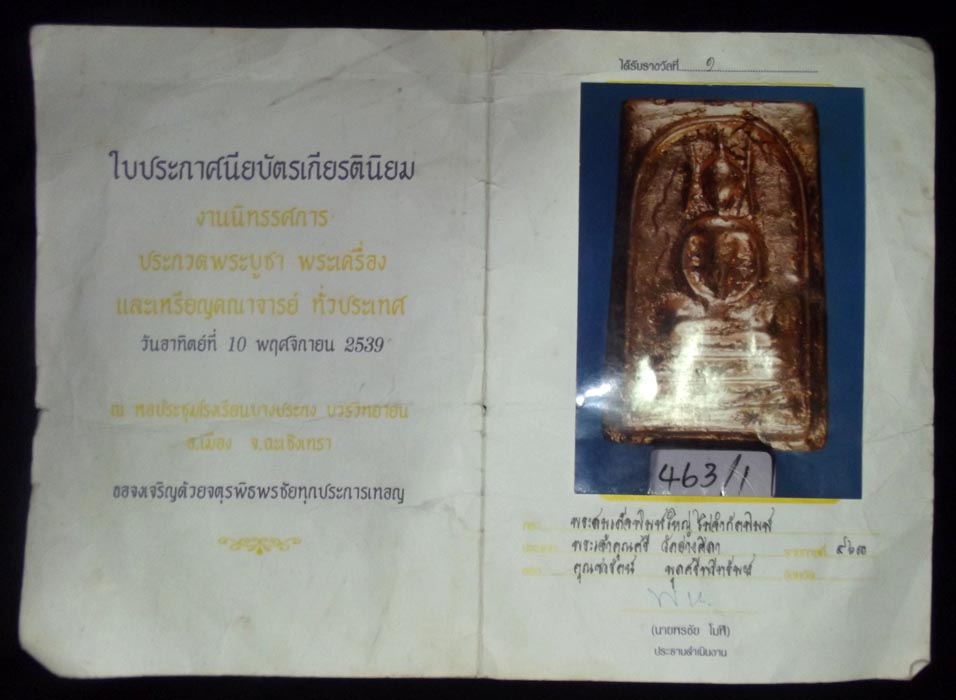 ใบประกาศนียบัตรเกียรตินิยม
งานนิทรรศการ
ประกวดพระบูชา พระเครื่อง
และเหรียญคณาจารย์ ทั่วประเทศ
วันอาทิตย์ที่ 10 พฤศจิกายน 2539
ณ หอประชุมโรงเรียนบางปะกง บวรวิทยายน
อ.เมือง จ.ฉะเชิงเทรา
ขอจงเจริญด้วยจตุรพิธพรชัยทุกประการเทอญ
ได้รับรางวัลที่ ๑
463/1
พระสมเด็จพิมพ์ใหญ่ ไม่จำกัดพิมพ์
ประเภท พระเจ้าคุณศรี วัดอ่างศิลา รายการที่
ของ คุณชารัตน์ จังหวัด
(นายพรชัย โมฬี)
ประธานดำเนินงาน